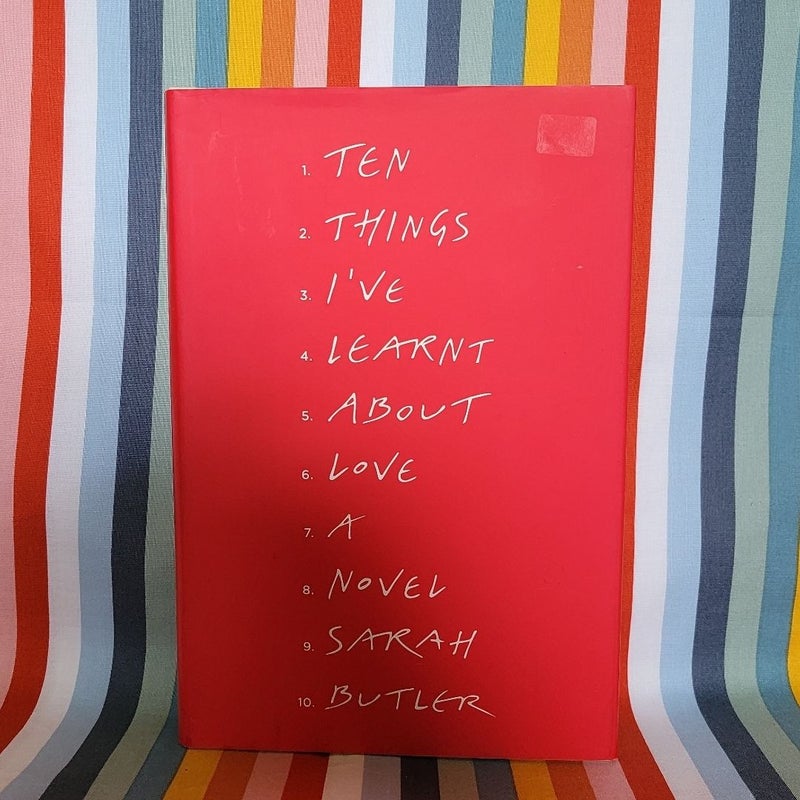 1. TEN
2. THINGS
3. I'VE
4. LEARNT
5. ABOUT
6. LOVE
7. A
8. NOVEL
9. SARAH
10. BUTLER